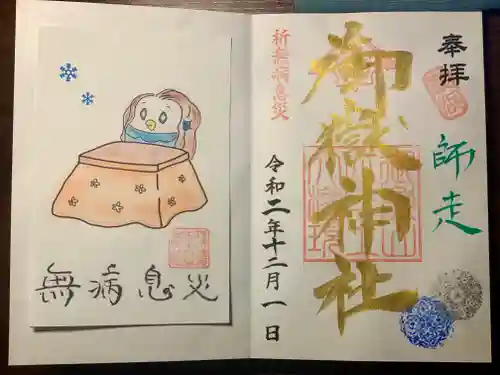 奉拝
師走
御嶽神社
祈無病息災
令和二年十二月一日
無病息災